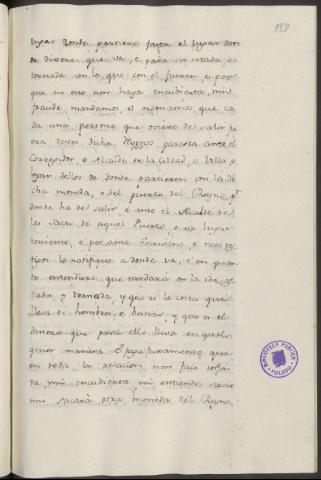 182
lugar donde partiere fasta el lugar don
de dixere que va, e para su estada, e
tornada con lo que con el fueren, e por
que en esto non haya encubierta, nin
fraude mandamos, e ordenamos que ca
da una persona que oviere de salir fu
era destos dichos Reynos parezca ante el
Corregidor, o Alcalde de la Cibdad, o Villa o
lugar dellos de donde partieren con la di
cha moneda, o del puerto del Reyno, pr
donde ha de salir, e ante el Alcalde de
las sacas de aquel Puerto, o su lugar
teniente, e por ante Escrivano, e tes
tigos lo notifique a donde va, e en quan
to entendiere que tardará en la ida, es
tada, y tornada, y que es la costa que
lleva de hombres, e bestias, y que es el
dinero que para ello lleva en qual
quier manera. E faga juramento, que
en toda la relacion non face infin
ta, nin encubierta nin entiende sacar
nin sacará otra moneda del Reyno
BIBLIOTECA PUBLICA
TOLEDO